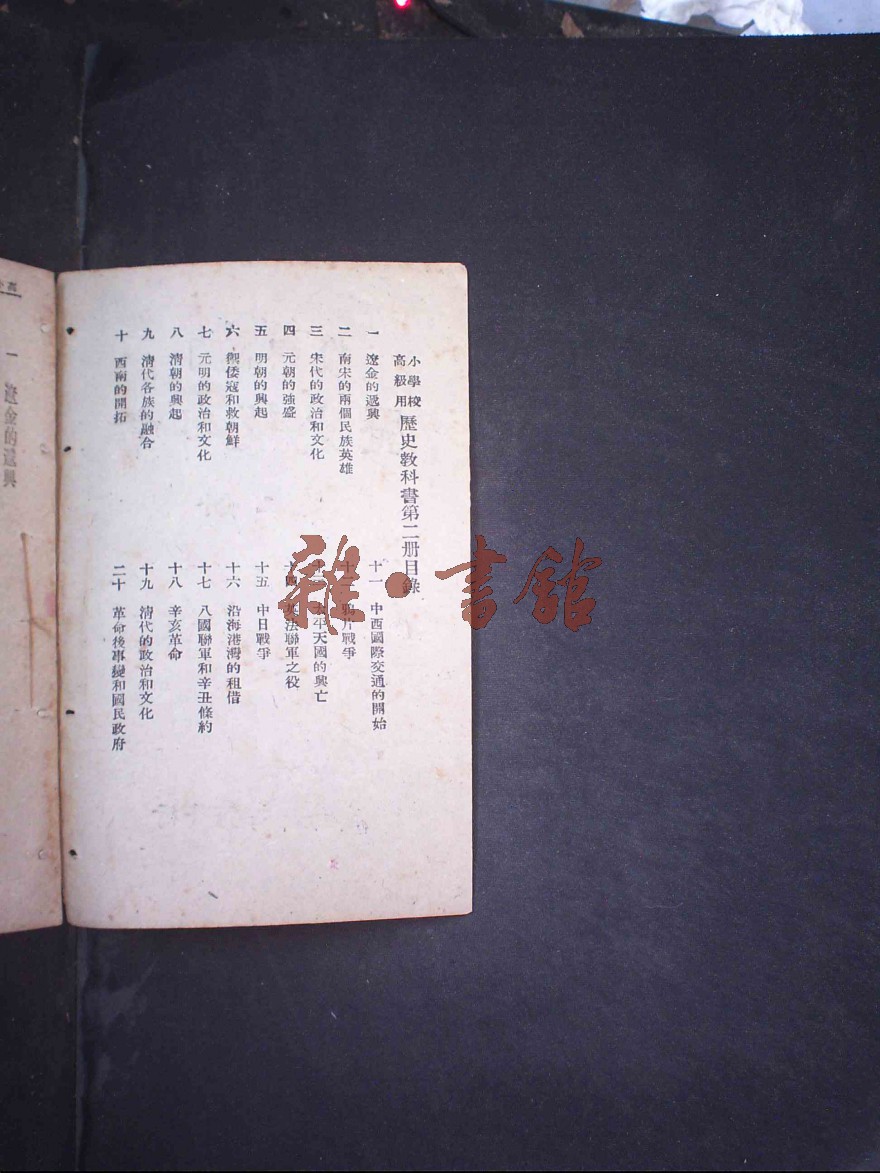 小學校高級用 歷史教科書第二册目錄
一 遼金的遞興
二 南宋的兩個民族英雄
三 宋代的政治和文化
四 元朝的強盛
五 明朝的興起
六 禦倭寇和救朝鮮
七 元明的政治和文化
八 清朝的興起
九 清代各族的融合
十 西南的開拓
十一 中西國際交通的開始
鴉片戰爭
太平天國的興亡
十四 英法聯軍之役
十五 中日戰爭
十六 沿海港灣的租借
十七 八國聯軍和辛丑條約
十八 辛亥革命
十九 清代的政治和文化
二十 革命後事變和國民政府
高小
一 遼金的遞興
雜·書館